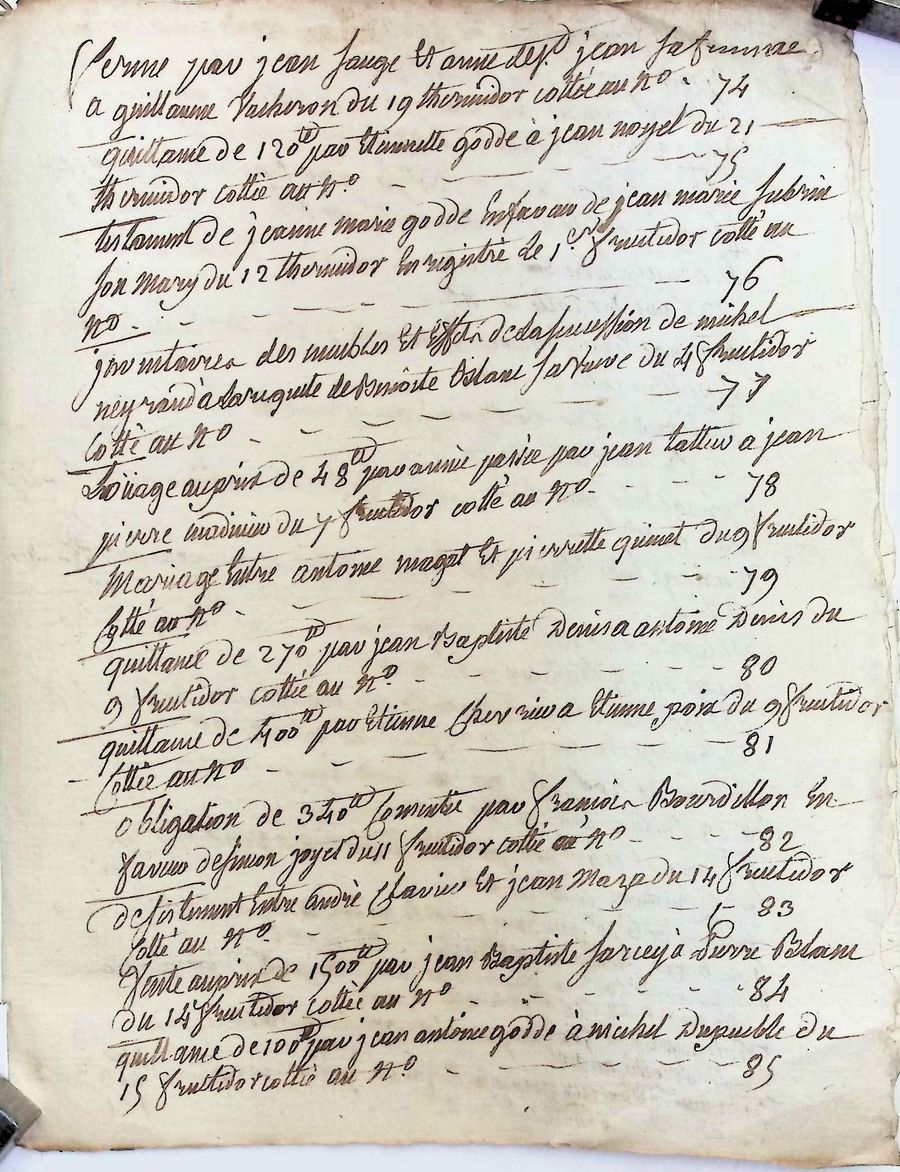 ferme par jean sauge Et anne desp. jean sa femme
a guillaume Vacheron du 19 thermidor cottée au N° - 74
quittance de 120tt par Etiennette godde à jean noyel du 21
thermidor cottée au N° - - - - 75
testament de jeanne marie godde En faveur de jean marie subrin
son mary du 12 thermidor Enregistré le 1er fructidor cotté au
N° - - - - 76
jnventaires des meubles Et Effets de la succession de michel
neyrand à la requete de Benoite Blanc sa veuve du 4 fructidor
Cotté au N° - - - - 77
Loüage au prix de 48tt par année passée par jean latteur a jean
pierre du 7 fructidor cotté au N° - - - 78
Mariage Entre antoine magat Et pierrette guinet du 9 fructidor
Cotté au N° - - - - 79
quittance de 270tt par jean Baptiste Denis a antoine Denis du
9 fructidor cottée au N° - - - - 80
quittance de 400tt par Etienne Chervieu a Etienne poix du 9 fructidor
Cottée au N° - - - - 81
obligation de 340tt Consentie par françois Bourdillon En
faveur de simon joyet du 11 fructidor cottée au N° - - - 82
desistement Entre andré Clavier Et jean Maza du 14 fructidor
Cotté au N° - - - - 83
Vente au prix de 1500tt par jean Baptiste sarcey à Pierre Blanc
du 14 fructidor cottée au N° - - - 84
quittance de 100tt par jean antoine godde à michel Dupueble du
15 fructidor cottée au N° - - - 85